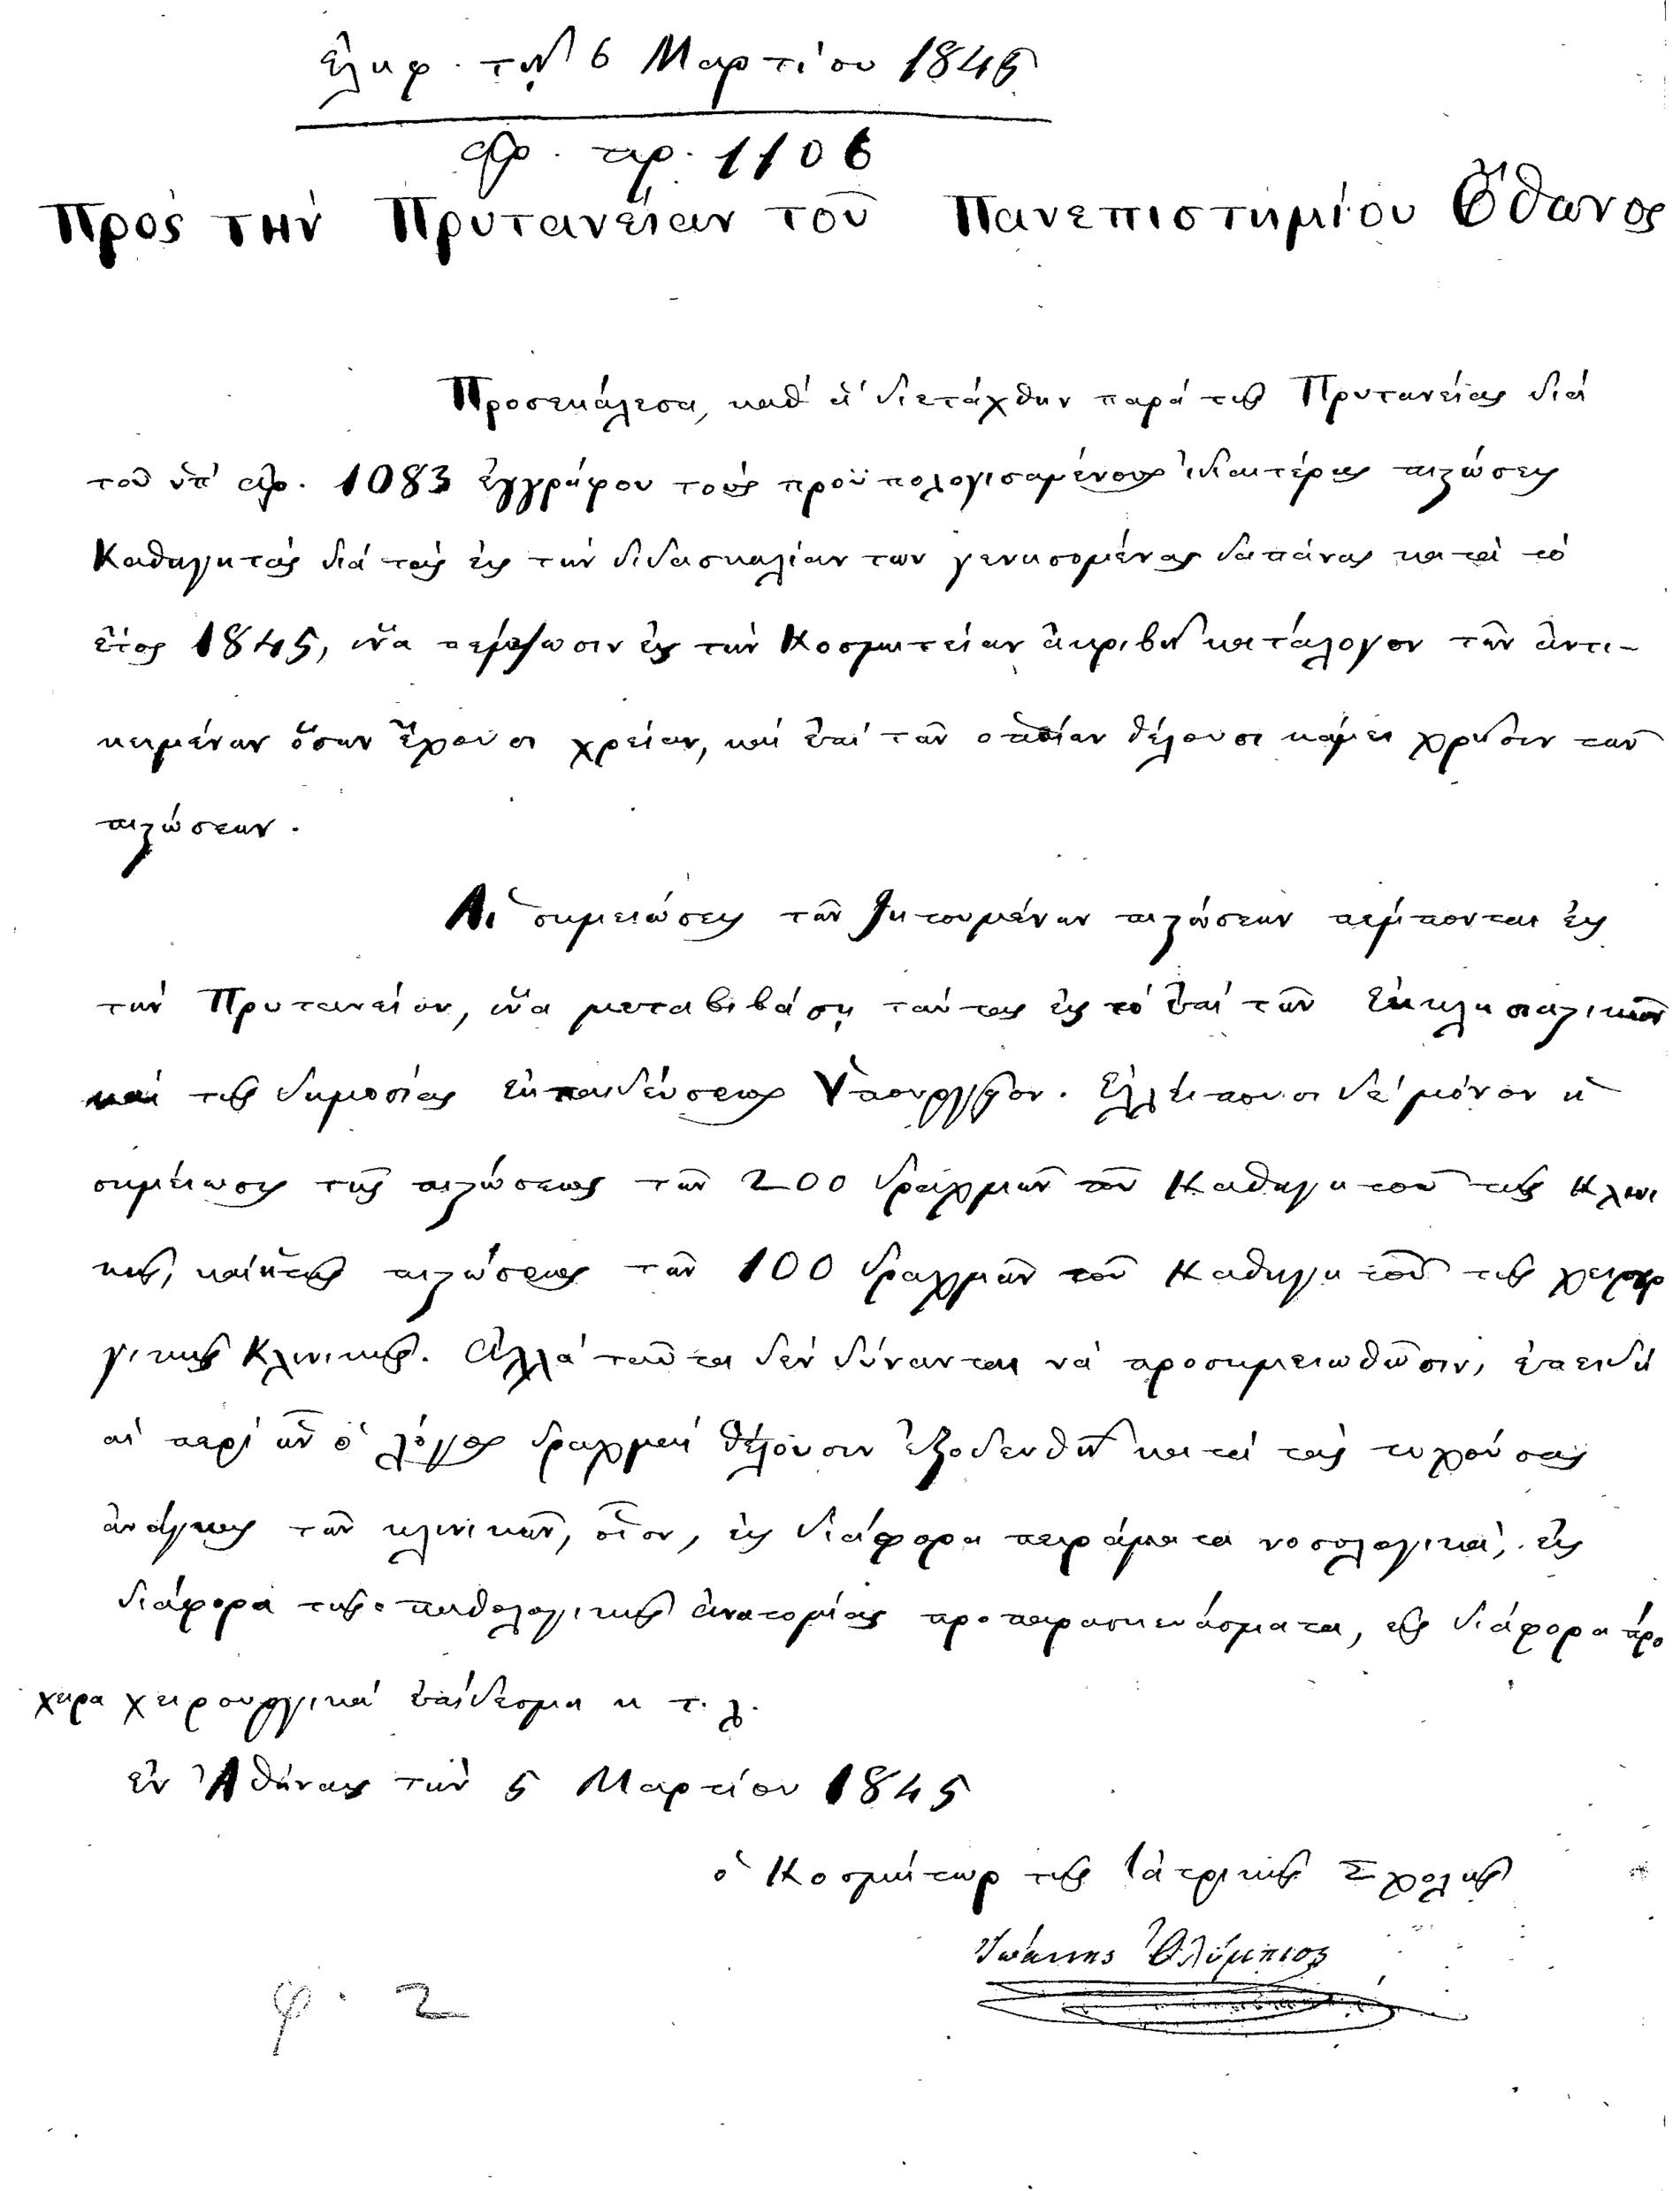 ἐλήφ. τῇ 6 Μαρτίου 1845
ἀρ. πρ. 1106
Πρὸς τὴν Πρυτανείαν τοῦ Πανεπιστημίου Ὄθωνος
Προσεκάλεσα, καθ' ἃ διετάχθην παρὰ τῆς Πρυτανείας διὰ
τοῦ ὑπ' ἀρ. 1083 ἐγγράφου τοὺς προϋπολογισαμένους ἰδιαιτέρας πιστώσεις
Καθηγητὰς διὰ τὰς εἰς τὴν διδασκαλίαν των γενησομένας δαπάνας κατὰ τὸ
ἔτος 1845, ἵνα πέμψωσιν εἰς τὴν Κοσμητείαν ἀκριβῆ κατάλογον τῶν ἀντι-
κειμένων ὅσων ἔχουσι χρείαν, καὶ ἐπὶ τῶν ὁποίων θέλουσι κάμει χρῆσιν τῶν
πιστώσεων.
Αἱ σημειώσεις τῶν ζητουμένων πιστώσεων πέμπονται εἰς
τὴν Πρυτανείαν, ἵνα μεταβιβάσῃ ταύτας εἰς τὸ ἐπὶ τῶν Ἐκκλησιαστικῶν
καὶ τῆς δημοσίας ἐκπαιδεύσεως Ὑπουργεῖον. Ἐλλείπουσι δὲ μόνον ἡ
σημείωσις τῆς πιστώσεως τῶν 200 δραχμῶν τοῦ Καθηγητοῦ τῆς Κλινι
κῆς, καὶ ἡ τῆς πιστώσεως τῶν 100 δραχμῶν τοῦ Καθηγητοῦ τῆς χειρουρ
γικῆς Κλινικῆς. Ἀλλὰ ταῦτα δὲν δύνανται νὰ προσημειωθῶσιν, ἐπειδὴ
αἱ περὶ ὧν ὁ λόγος δραχμαὶ θέλουσιν ἐξοδευθῆ κατὰ τὰς τυχούσας
ἀνάγκας τῶν κλινικῶν, οἷον, εἰς διάφορα πειράματα νοσολογικά, εἰς
διάφορα τῆς παθολογικῆς ἀνατομίας προπαρασκευάσματα, εἰς διάφορα πρό
χειρα χειρουργικὰ ἐπίδεσμα κ τ. λ.
ἐν Ἀθήναις τὴν 5 Μαρτίου 1845
ὁ Κοσμήτωρ τῆς Ἰατρικῆς Σχολῆς
Ἰωάννης Ὀλύμπιος
φ. 2